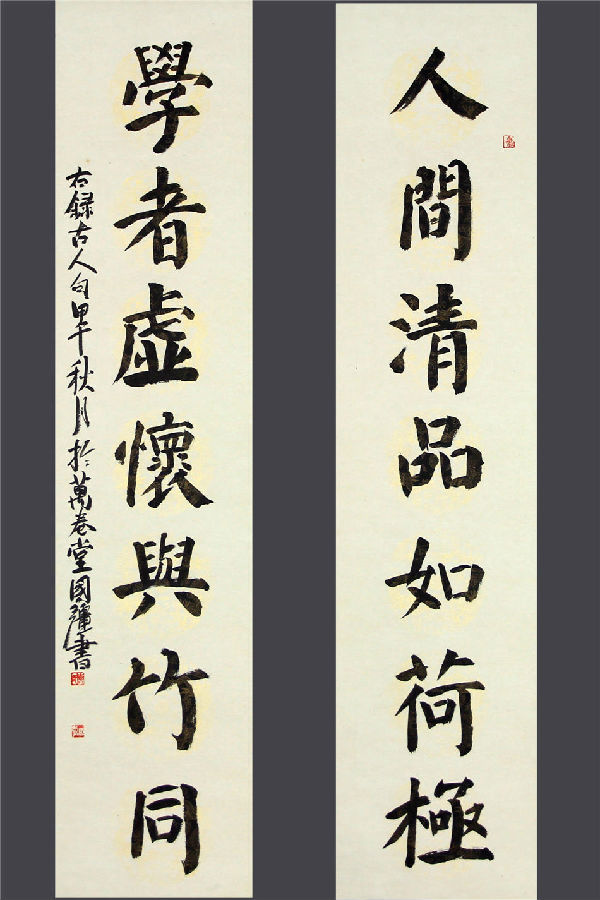 人間清品如荷極
學者虛懷與竹同
右錄古人句甲午秋月於萬卷堂國疆書